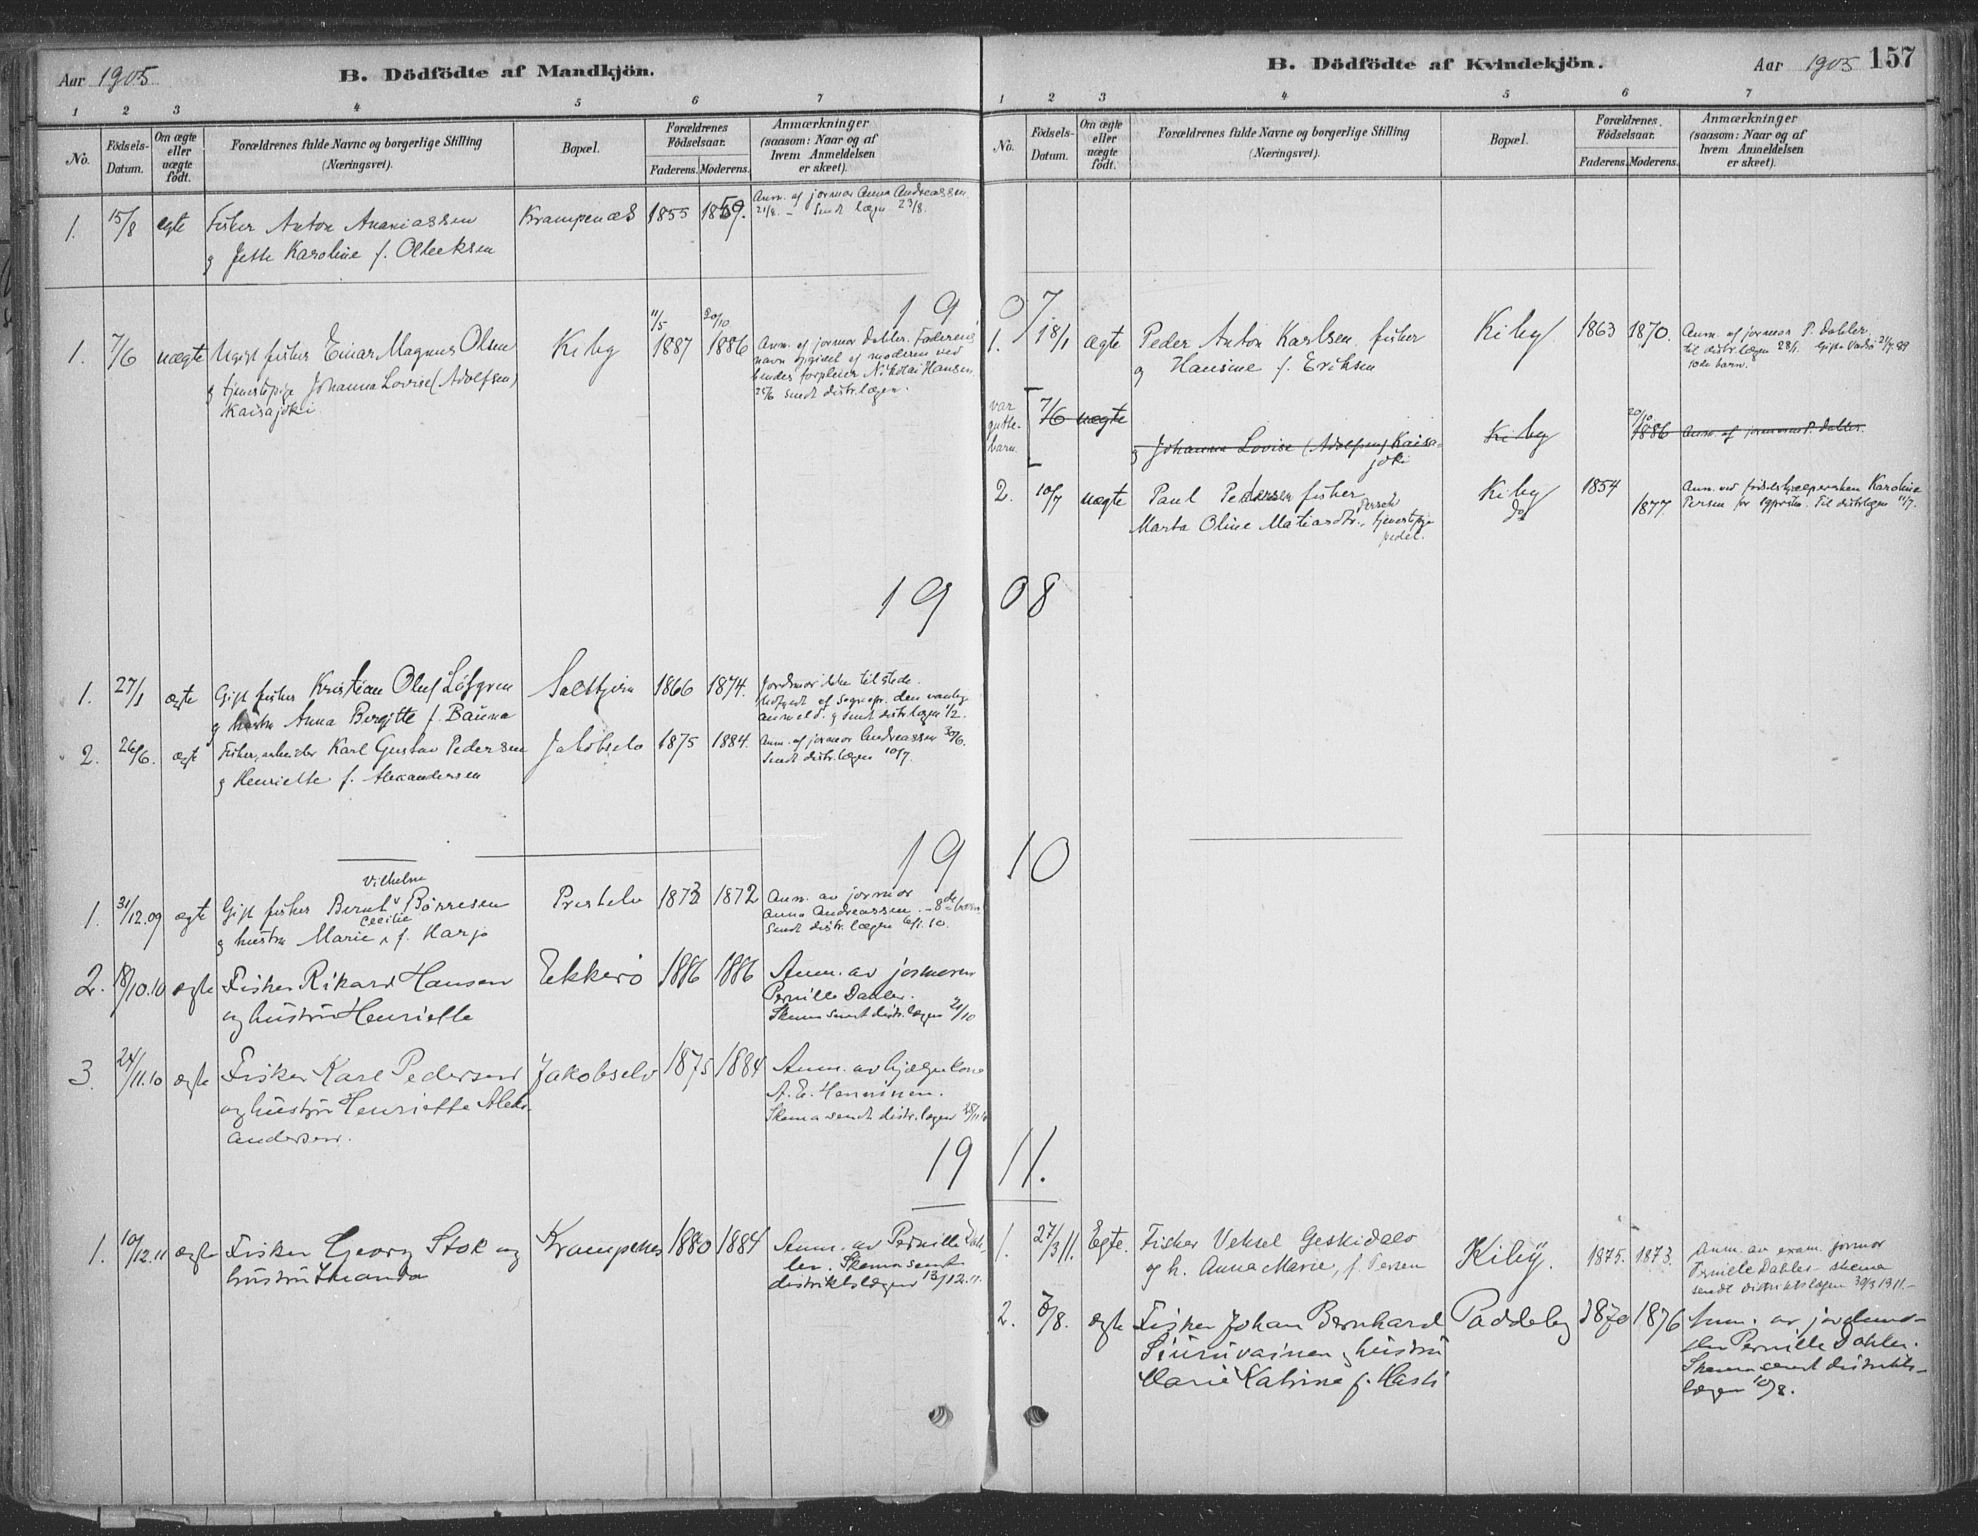 Aar 1905
B. Dödfödte af Mandkjön.
1 2 3 4 5 6 7
No.
Födsels-
Datum.
Om ægte
eller
uægte
födt.
Forældrenes fulde Navne og borgerlige Stilling
(Næringsvei).
Bopæl.
Forældrenes
Födselsaar.
Faderens. Moderens.
Anmærkninger
(saasom: Naar og af
hvem Anmeldelsen
er skeet).
1. 15/8 ægte Fisker Anton Ananiassen Krampenæs 1855 1859.
g Jette Karoline f. Olteeksen
Anm. af jormor Anna Andreassen
21/8. – Sendt lægen 23/8.
19
1. 7/6 uægte Ugift fisker Einar Magnus Olsen Kiby 11/5 1887 20/10 1886
g tjenestepige Johanna Lovise (Adolfsen)
Kaisajoki.
Anm. af jormor Dahler. Faderens
navn opgivet af moderen ved
hendes forpleier Nikolai Hansen.
25/6 sendt distr.lægen.
19
1. 27/1 ægte Gift fisker Kristian Oluf Löfgren Saltbjern 1866 1874.
g hustru Anna Bergitte f. Bauna
Jordmor ikke tilstede.
af Sognepr. den vanlige
anmeld. g sendt distr.lægen 1/2.
2. 26/6. ægt Fisker, arbeider Karl Gustav Pedersen Jakobselv 1875 1884.
g Henriette f. Alexandersen
Anm. af jormor Andreassen 30/6.
Sendt distr.lægen 10/7.
19
1. 31/12.09 ægte Gift fisker Bernt Vilhelm Börresen Prestelv 1873 1872
g hustru Marie Cecilie f. Harju
Anm. av jormor
Anna Andreassen. – 8de barn
Sendt distr. lægen 6/1.10.
2. 18/10.10 ægte Fisker Rikard Hansen Ekkerö 1886 1886
og hustru Henriette
Anm. av jormoren
Pernille Dahler.
Skema sendt distr.lægen 21/10
3. 24/11.10 ægte Fisker Karl Pedersen Jakobselv 1875 1884
og hustru Henriette Alek-
andersen.
Anm. av hjælpekone
A. E. Henninen.
Skema sendt distr.lægen 28/11.10
19
1. 10/12.11 ægte Fisker Georg Stok og Krampenes 1880 1884
hustru Amanda
Anm. av Pernille Dah-
ler. Skema sendt
distriktslægen 13/12.11.
B. Dödfödte af Kvindekjön.
Aar 1905 157
1 2 3 4 5 6 7
No.
Födsels-
Datum.
Om ægte
eller
uægte
födt.
Forældrenes fulde Navne og borgerlige Stilling
(Næringsvei).
Bopæl.
Forældrenes
Födselsaar.
Faderens. Moderens.
Anmærkninger
(saasom: Naar og af
hvem Anmeldelsen
er skeet).
07
1. 18/1 ægte Peder Anton Karlsen fisker Kiby 1863 1870.
og Hansine f. Eriksen
Anm. af jormor P. Dahler
til distr.lægen 28/1. Gift Vadsö 21/7.89
10de barn.
var
gutte-
barn.
7/6 uægte
g Johanna Lovise (Adolfsen) Kaisa-
joki
Kiby 20/10 1886 Anm. af jormoren P. Dahler
2. 10/7 uægte Paul Pedersen fisker Kiby 1854
Marta Oline Matiasdtr. Persen tjenestepige
Do 1877.
Anm. ved födselshjælpersken Karoline
Persen for sogneprsten. Til distr.lægen 11/7.
08
10
11.
1. 27/3 11. Egte. Fisker Veksel Geskidalo Kiby. 1875. 1873.
og h. Anna Marie, f. Persen
Anm. av exam. jormor
Pernille Dahler – skema
sendt distriktslægen 30/3 1911 –
2. 7/8. ægte Fisker Johan Bernhard Paddeby 1870 1876
Siuruvainen g hustru
Marie Katrine f. Hasti
Anm. av jordmod-
der Pernille Dahler.
Skema sendt distrikts-
lægen 10/8.